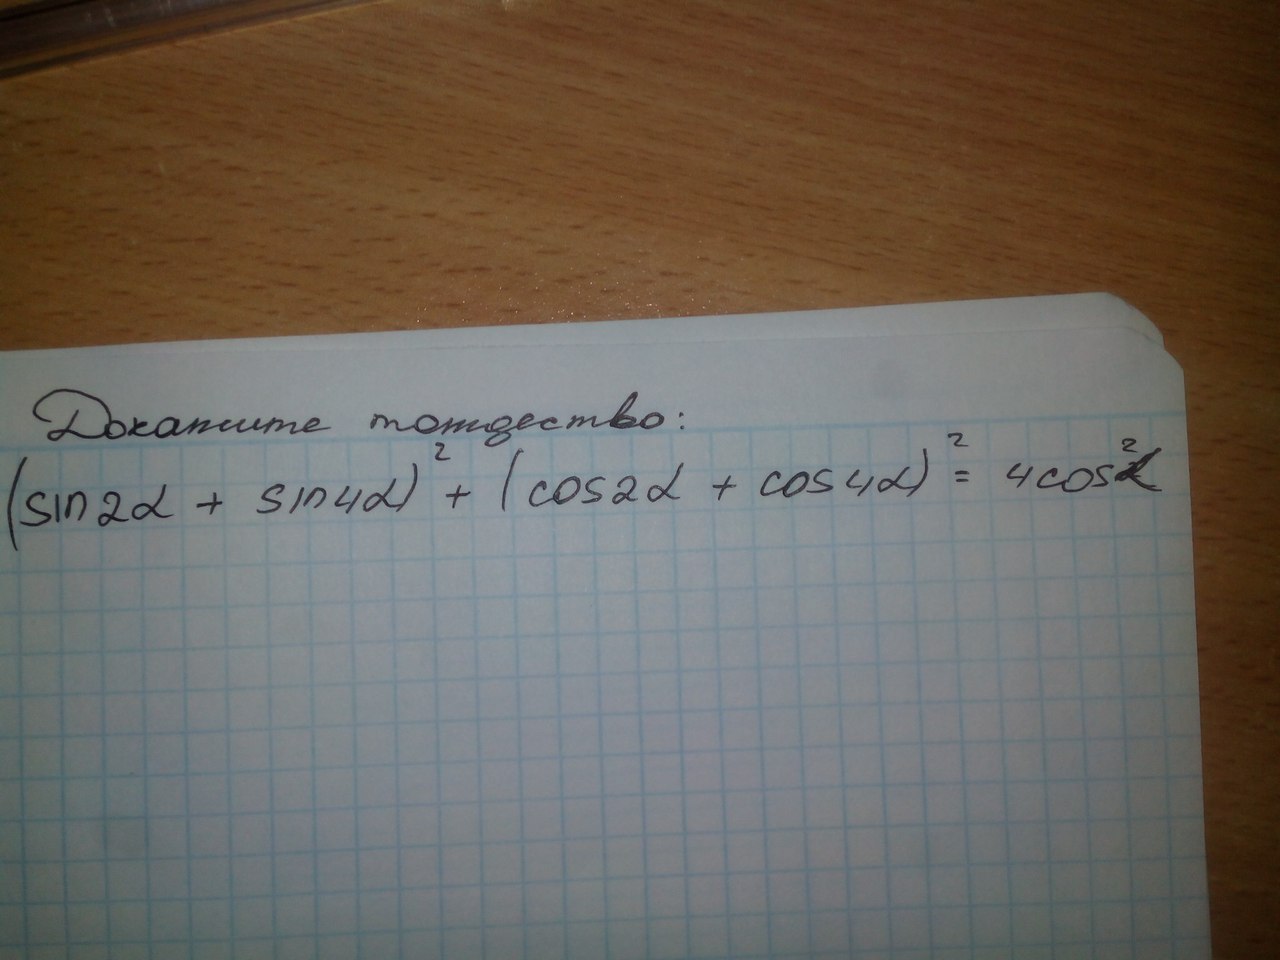 Докажите тождество:
(sin2α + sin4α)² + (cos2α + cos4α)² = 4cos²α